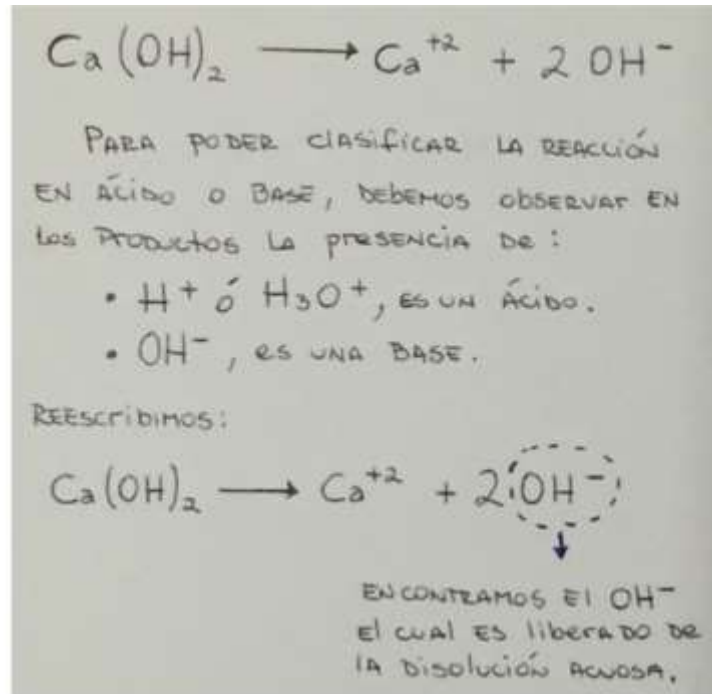 Ca(OH)₂ ⟶ Ca⁺² + 2 OH⁻
PARA PODER CLASIFICAR LA REACCIÓN
EN ÁCIDO O BASE, DEBEMOS OBSERVAR EN
LOS PRODUCTOS LA PRESENCIA DE:
• H⁺ ó H₃O⁺, ES UN ÁCIDO.
• OH⁻, ES UNA BASE.
REESCRIBIMOS:
Ca(OH)₂ ⟶ Ca⁺² + 2 OH⁻
ENCONTRAMOS El OH⁻
El CUAL ES liberADO DE
lA DISOLUCIÓN ACUOSA.